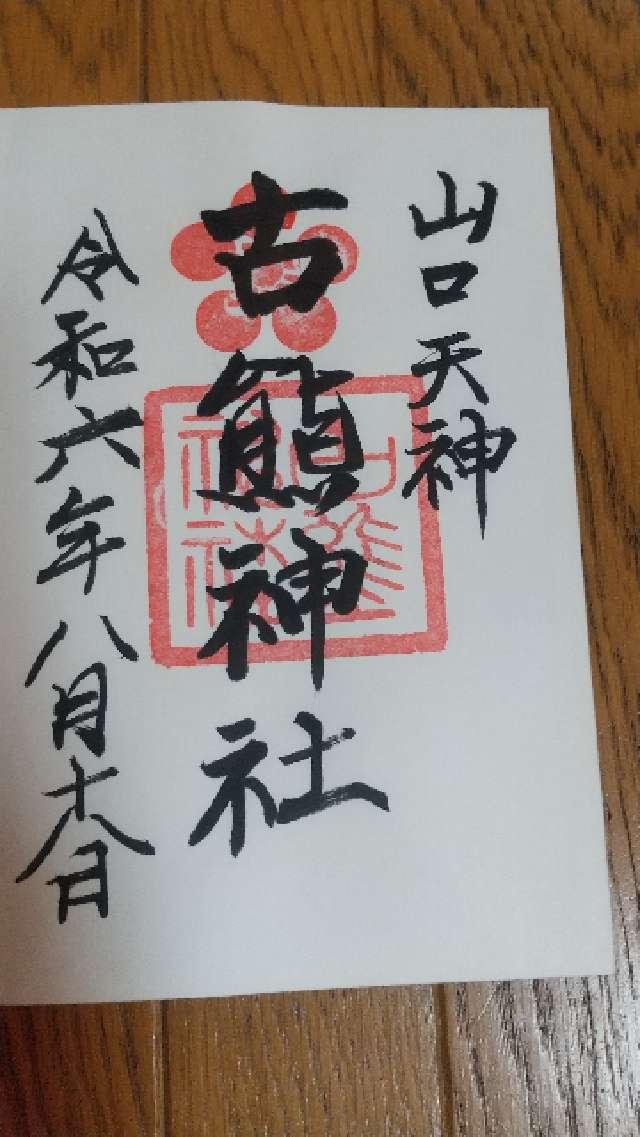 山口天神
古熊神社
令和六年八月十八日